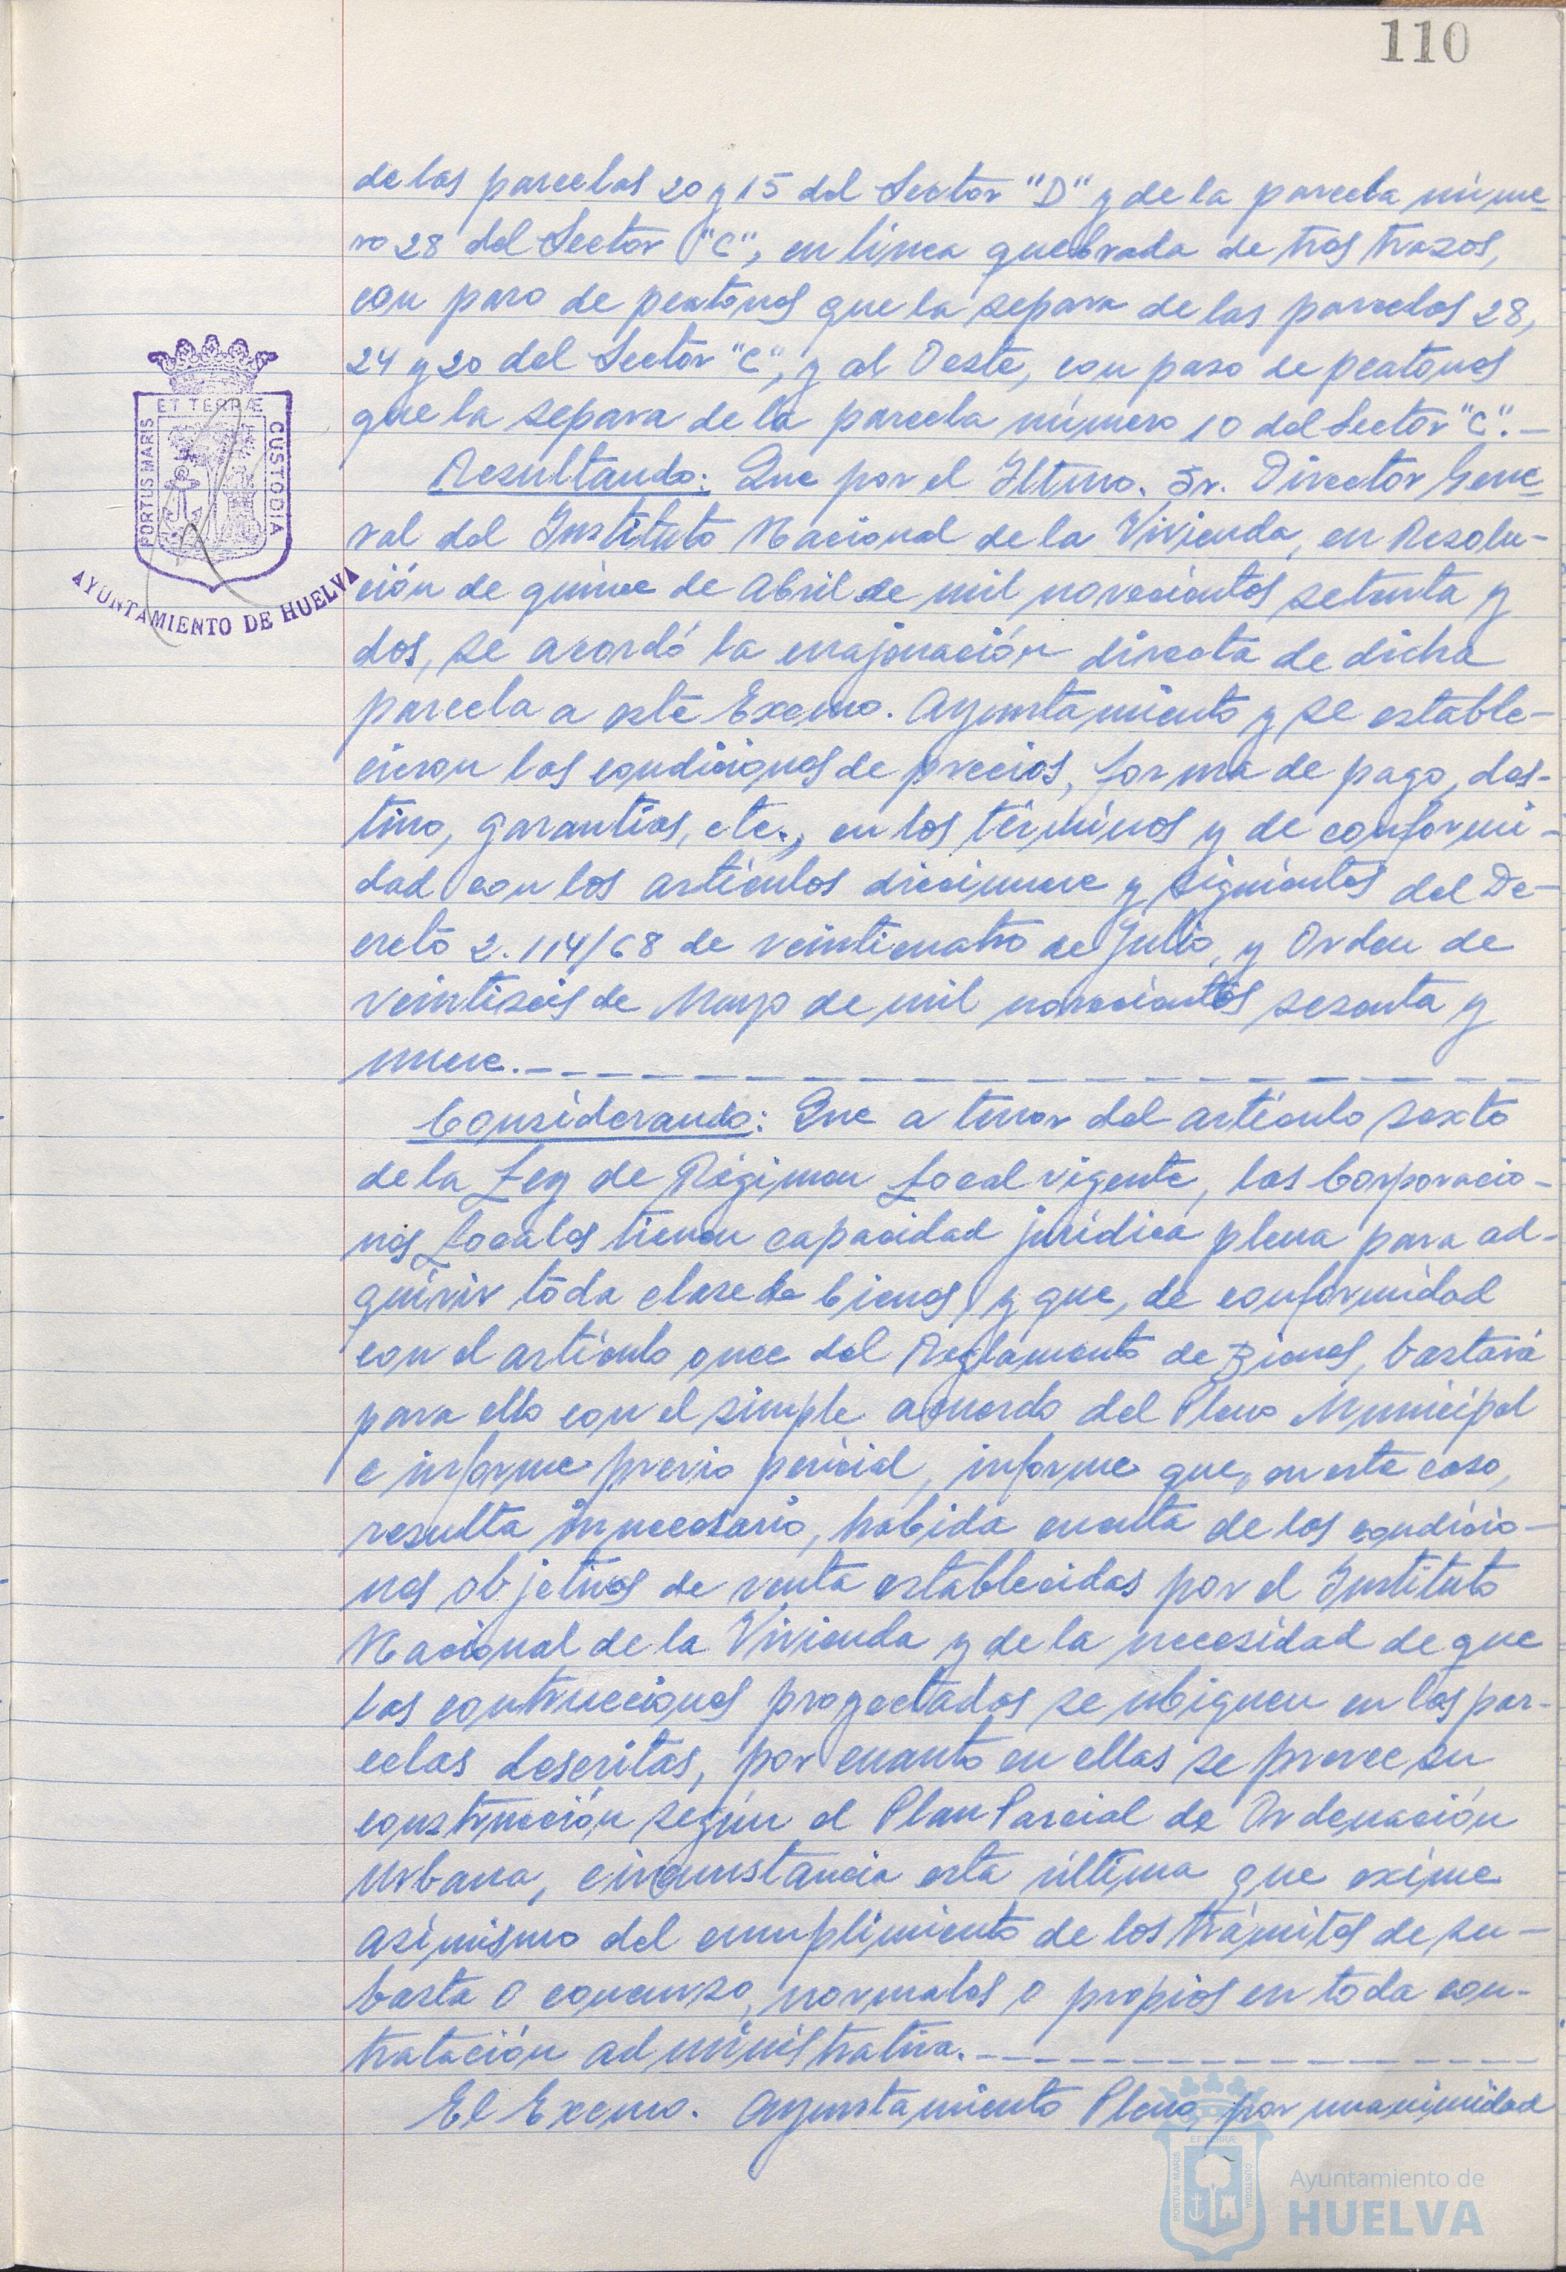 110
de las parcelas 20 y 15 del Sector "D" y de la parcela núme-
ro 28 del Sector "C", en línea quebrada de tres trazos,
con paso de peatones que la separa de las parcelas 28,
24 y 20 del Sector "C", y al Oeste, con paso de peatones
que la separa de la parcela número 10 del Sector "C".-
Resultando: Que por el Iltmo. Sr. Director Gene-
ral del Instituto Nacional de la Vivienda, en Resolu-
ción de quince de Abril de mil novecientos setenta y
dos, se acordó la enajenación directa de dicha
parcela a este Excmo. Ayuntamiento y se estable-
cieron las condiciones de precios, forma de pago, des-
tino, garantías, etc., en los términos y de conformi-
dad con los artículos diecinueve y siguientes del De-
creto 2.114/68 de veinticuatro de Julio, y Orden de
veintiseis de Mayo de mil novecientos sesenta y
nueve.-
Considerando: Que a tenor del artículo sexto
de la Ley de Régimen Local vigente, las Corporacio-
nes Locales tienen capacidad jurídica plena para ad-
quirir toda clase de bienes, y que, de conformidad
con el artículo once del Reglamento de Bienes, bastará
para ello con el simple acuerdo del Pleno Municipal
e informe previo pericial, informe que, en este caso,
resulta innecesario, habida cuenta de las condicio-
nes objetivas de venta establecidas por el Instituto
Nacional de la Vivienda y de la necesidad de que
las contrucciones proyectadas se ubiquen en las par-
celas descritas, por cuanto en ellas se preveé su
construcción según el Plan Parcial de Ordenación
Urbana, circunstancia esta última que exime
asimismo del cumplimiento de los trámites de su-
basta o concurso, normales o propios en toda con-
tratación administrativa.-
El Excmo. Ayuntamiento Pleno, por unanimidad
ET TERRÆ
PORTUS MARIS
CUSTODIA
AYUNTAMIENTO DE HUELVA
ET TERRÆ
PORTUS MARIS
CUSTODIA
Ayuntamiento de
HUELVA